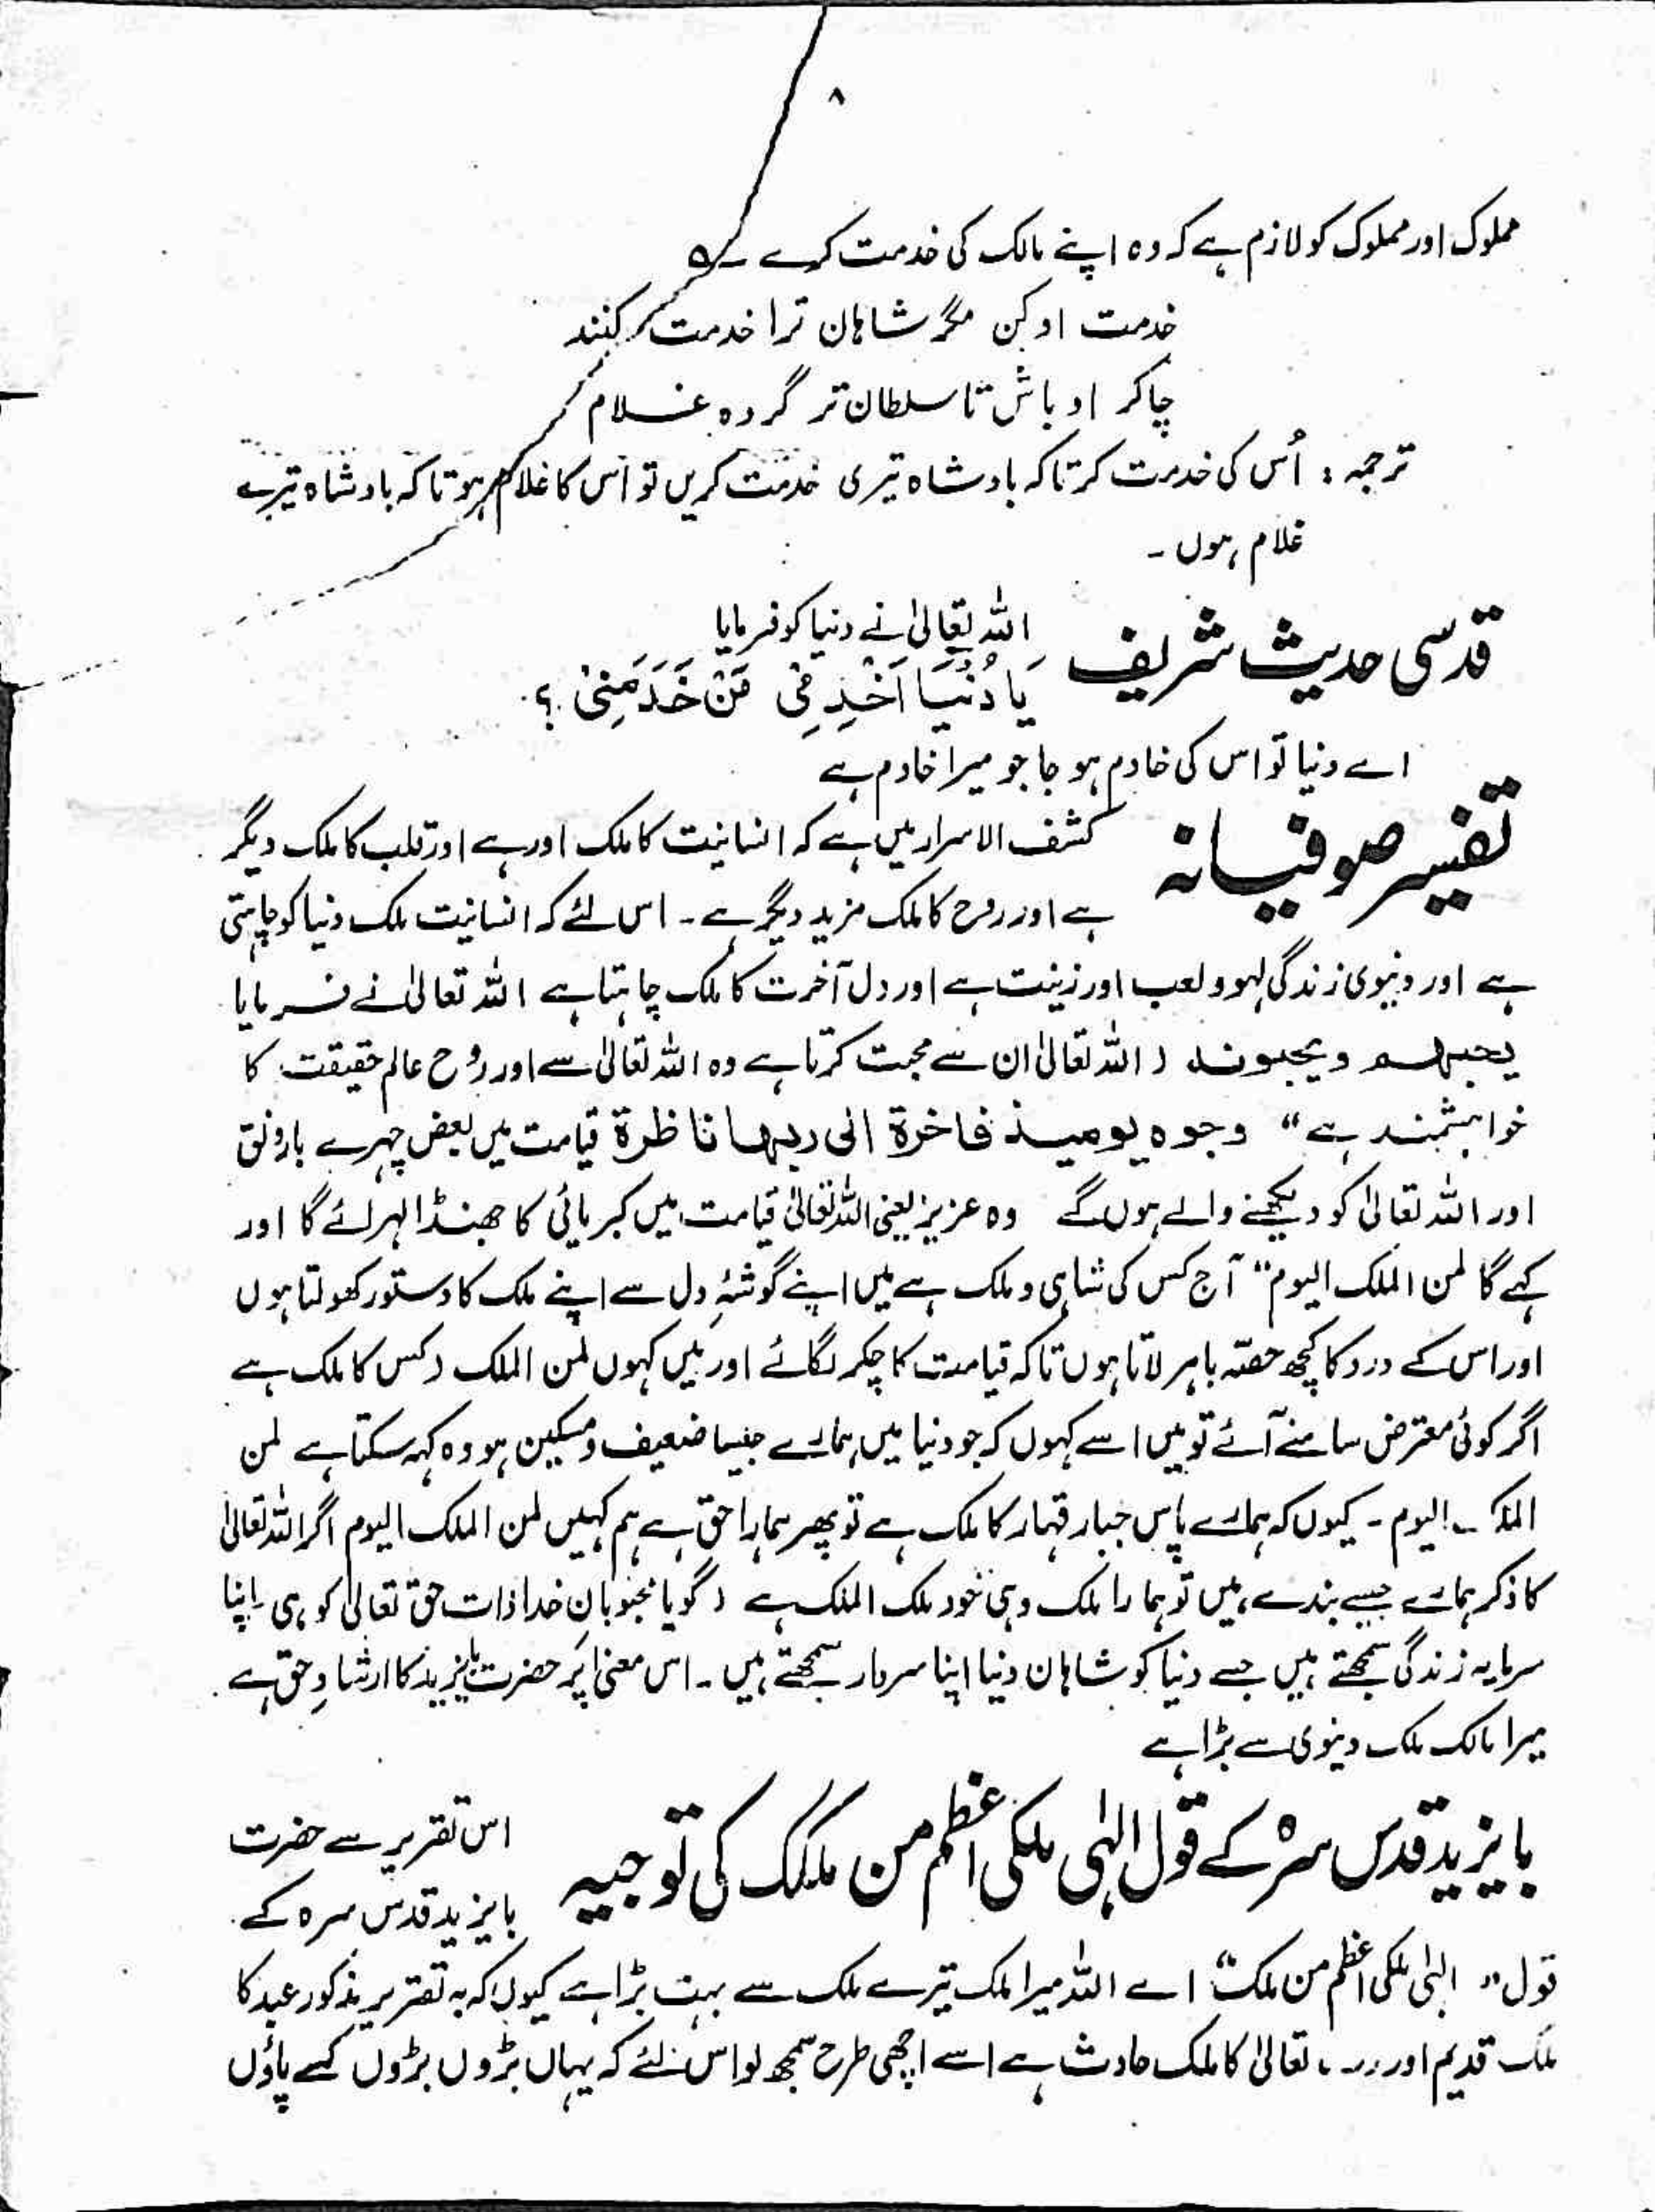 ۸
مملوک اور مملوک کو لازم ہے کہ وہ اپنے مالک کی خدمت کرے ۔ ؎
خدمت او کن مگر شاہان ترا خدمت کنند
چاکر او باش تا سلطان تر گردہ غلام
ترجمہ : اُس کی خدمت کر تاکہ بادشاہ تیری خدمت کریں تو اُس کا غلام ہو تاکہ بادشاہ تیرے
غلام ہوں ۔
قدسی حدیث شریف
اللہ تعالیٰ نے دنیا کو فرمایا
یَا دُنْیَا اَخْدِمِیْ مَنْ خَدَمَنِیْ ؟
اے دنیا تو اس کی خادم ہو جا جو میرا خادم ہے
تفسیر صوفیانہ
کشف الاسرار میں ہے کہ انسانیت کا ملک اور ہے اور قلب کا ملک دیگر
ہے اور روح کا ملک مزید دیگر ہے ۔ اس لئے کہ انسانیت ملک دنیا کو چاہتی
ہے اور دنیوی زندگی لہو و لعب اور زینت ہے اور دل آخرت کا ملک چاہتا ہے اللہ تعالیٰ نے فرمایا
یحبہم ویحبونہ ( اللہ تعالیٰ ان سے محبت کرتا ہے وہ اللہ تعالیٰ سے اور روح عالم حقیقت کا
خواہشمند ہے " وجوہ یومیذ فاخرۃ الی ربہا ناظرۃ قیامت میں بعض چہرے بارونق
اور اللہ تعالیٰ کو دیکھنے والے ہوں گے وہ عزیز یعنی اللہ تعالیٰ قیامت میں کبریائی کا جھنڈا لہرائے گا اور
کہے گا لمن الملک الیوم" آج کس کی شاہی و ملک ہے میں اپنے گوشۂ دل سے اپنے ملک کا دستور کھولتا ہوں
اور اس کے درد کا کچھ حصّہ باہر لاتا ہوں تاکہ قیامت کا چکر لگائے اور میں کہوں لمن الملک ( کس کا ملک ہے
اگر کوئی معترض سامنے آئے تو میں اسے کہوں کہ جو دنیا میں ہمارے جیسا ضعیف و مسکین ہو وہ کہہ سکتا ہے لمن
الملک الیوم ۔ کیوں کہ ہمارے پاس جبار قہار کا ملک ہے تو پھر ہمارا حق ہے ہم کہیں لمن الملک الیوم اگر اللہ تعالیٰ
کا ذکر ہمارے جیسے بندے ہیں تو ہمارا ملک وہی خود ملک الملک ہے ( گویا محبوبان خدا ذات حق تعالیٰ کو ہی اپنا
سرمایہ زندگی سمجھتے ہیں جسے دنیا کو شاہان دنیا اپنا سرمار سمجھتے ہیں ۔ اس معنیٰ پر حضرت بایزید کا ارشاد حق ہے
میرا مالک ملک دینوی سے بڑا ہے
بایزید قدس سرہٗ کے قول الہٰی ملکی اعظم من ملکک کی توجیہ
اس تقریر سے حضرت
بایزید قدس سرہ کے
قول " الہٰی ملکی اعظم من ملکک" اے اللہ میرا ملک تیرے ملک سے بہت بڑا ہے کیوں کہ بہ تقریر مذکور عبد کا
ملک قدیم اور تعالیٰ کا ملک حادث ہے اسے اچھی طرح سمجھ لو اس لئے کہ یہاں بڑوں بڑوں کے پاؤں